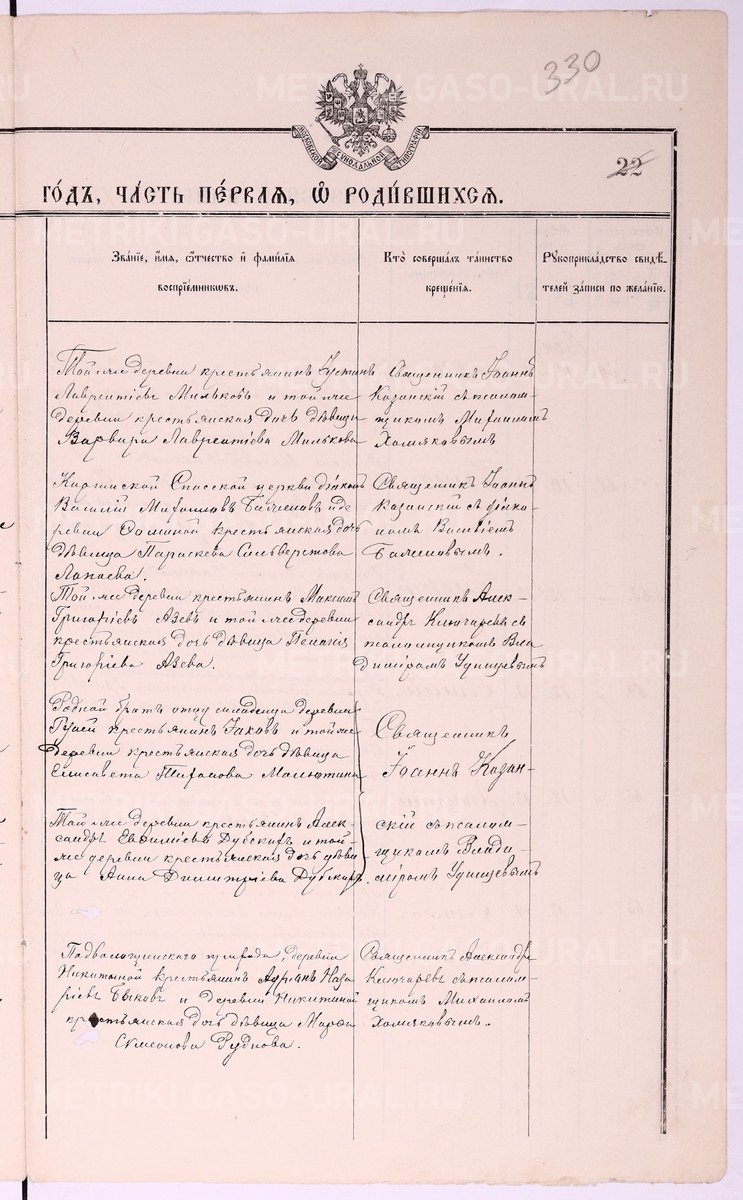 330
МОСКОВСКОЙ СУНОДАЛЬНОЙ ТИПОГРАФІИ
22
ГОДЪ, ЧАСТЬ ПЕРВАЯ, Ѡ РОДИВШИХСЯ.
Званіе, имя, ѿчество и фамилія
воспріемниковъ.
Кто совершалъ таинство
крещенія.
Рукоприкладство свидѣ-
телей записи по желанію.
Той же деревни крестьянинъ Іустинъ
Лаврентіевъ Мильковъ и той же
деревни крестьянская дочь дѣвица
Варвара Лаврентіева Милькова
Священникъ Іоаннъ
Казанскій съ псалом-
щикомъ Михаиломъ
Хомяковымъ
Спасской церкви діаконъ
Василій Михаиловъ и де-
ревни крестьянская дочь
дѣвица Параскева Сильверстова
Лапаева.
Священникъ Іоаннъ
Казанскій съ діако-
номъ Василіемъ
Той же деревни крестьянинъ Максимъ
Григоріевъ Азевъ и той же деревни
крестьянская дочь дѣвица Пелагія
Григоріева Азева.
Священникъ Алек-
сандръ Ключаревъ съ
псаломщикомъ Вла
диміромъ Удинцевымъ
Родной братъ отцу младенца деревни
крестьянинъ Іаковъ и той же
деревни крестьянская дочь дѣвица
Елисавета Малютина
Священникъ
Іоаннъ Казан-
Той же деревни крестьянинъ Алек-
сандръ Дубскихъ и той-
же деревни крестьянская дочь дѣви-
ца Анна Димитріева Дубскихъ.
скій съ псалом-
щикомъ Влади-
міромъ Удинцевымъ
прихода, деревни
Никитиной крестьянинъ Адріанъ Наза
ріевъ Быковъ и деревни Никитиной
крестьянская дочь дѣвица Марѳа
Симеонова Руднова.
Священникъ Александръ
Ключаревъ съ псалом-
щикомъ Михаиломъ
Хомяковымъ.
METRIKI.GASO-URAL.RU